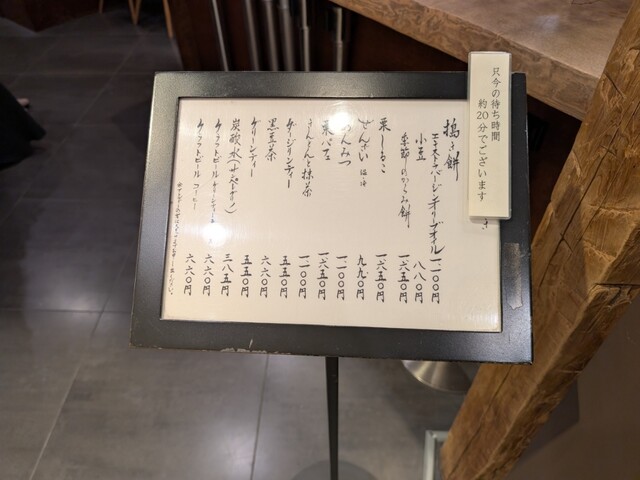 只今の待ち時間
約20分でございます
搗き餅
エキストラバージンオリーブオイル 一一〇〇円
小豆 八八〇円
からみ餅 一六五〇円
栗しるこ 一六五〇円
ぜんざい 温・冷 九九〇円
あんみつ 一一〇〇円
栗パフェ 一六五〇円
きんとんと抹茶 一一〇〇円
ダージリンティー 五五〇円
黒豆茶 六六〇円
グリーンティー 五五〇円
炭酸水(サンペレグリノ) 三八五円
クラフトビール 六六〇円
クラフトビール コーヒー 六六〇円